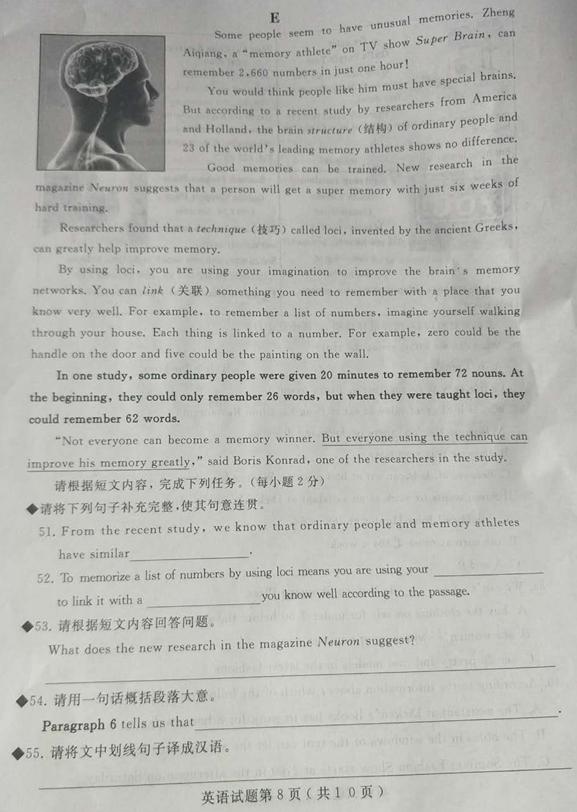 E
Some people seem to have unusual memories. Zheng
Aiqiang, a "memory athlete" on TV show Super Brain, can
remember 2,660 numbers in just one hour!
You would think people like him must have special brains.
But according to a recent study by researchers from America
and Holland, the brain structure (结构) of ordinary people and
23 of the world's leading memory athletes shows no difference.
Good memories can be trained. New research in the
magazine Neuron suggests that a person will get a super memory with just six weeks of
hard training.
Researchers found that a technique (技巧) called loci, invented by the ancient Greeks,
can greatly help improve memory.
By using loci, you are using your imagination to improve the brain's memory
networks. You can link (关联) something you need to remember with a place that you
know very well. For example, to remember a list of numbers, imagine yourself walking
through your house. Each thing is linked to a number. For example, zero could be the
handle on the door and five could be the painting on the wall.
In one study, some ordinary people were given 20 minutes to remember 72 nouns. At
the beginning, they could only remember 26 words, but when they were taught loci, they
could remember 62 words.
"Not everyone can become a memory winner. But everyone using the technique can
improve his memory greatly," said Boris Konrad, one of the researchers in the study.
请根据短文内容,完成下列任务。(每小题2分)
◆请将下列句子补充完整,使其句意连贯。
51. From the recent study, we know that ordinary people and memory athletes
have similar____________.
52. To memorize a list of numbers by using loci means you are using your ____________
to link it with a ____________you know well according to the passage.
◆53. 请根据短文内容回答问题。
What does the new research in the magazine Neuron suggest?
◆54. 请用一句话概括段落大意。
Paragraph 6 tells us that____________.
◆55. 请将文中划线句子译成汉语。
英语试题第8页(共10页)